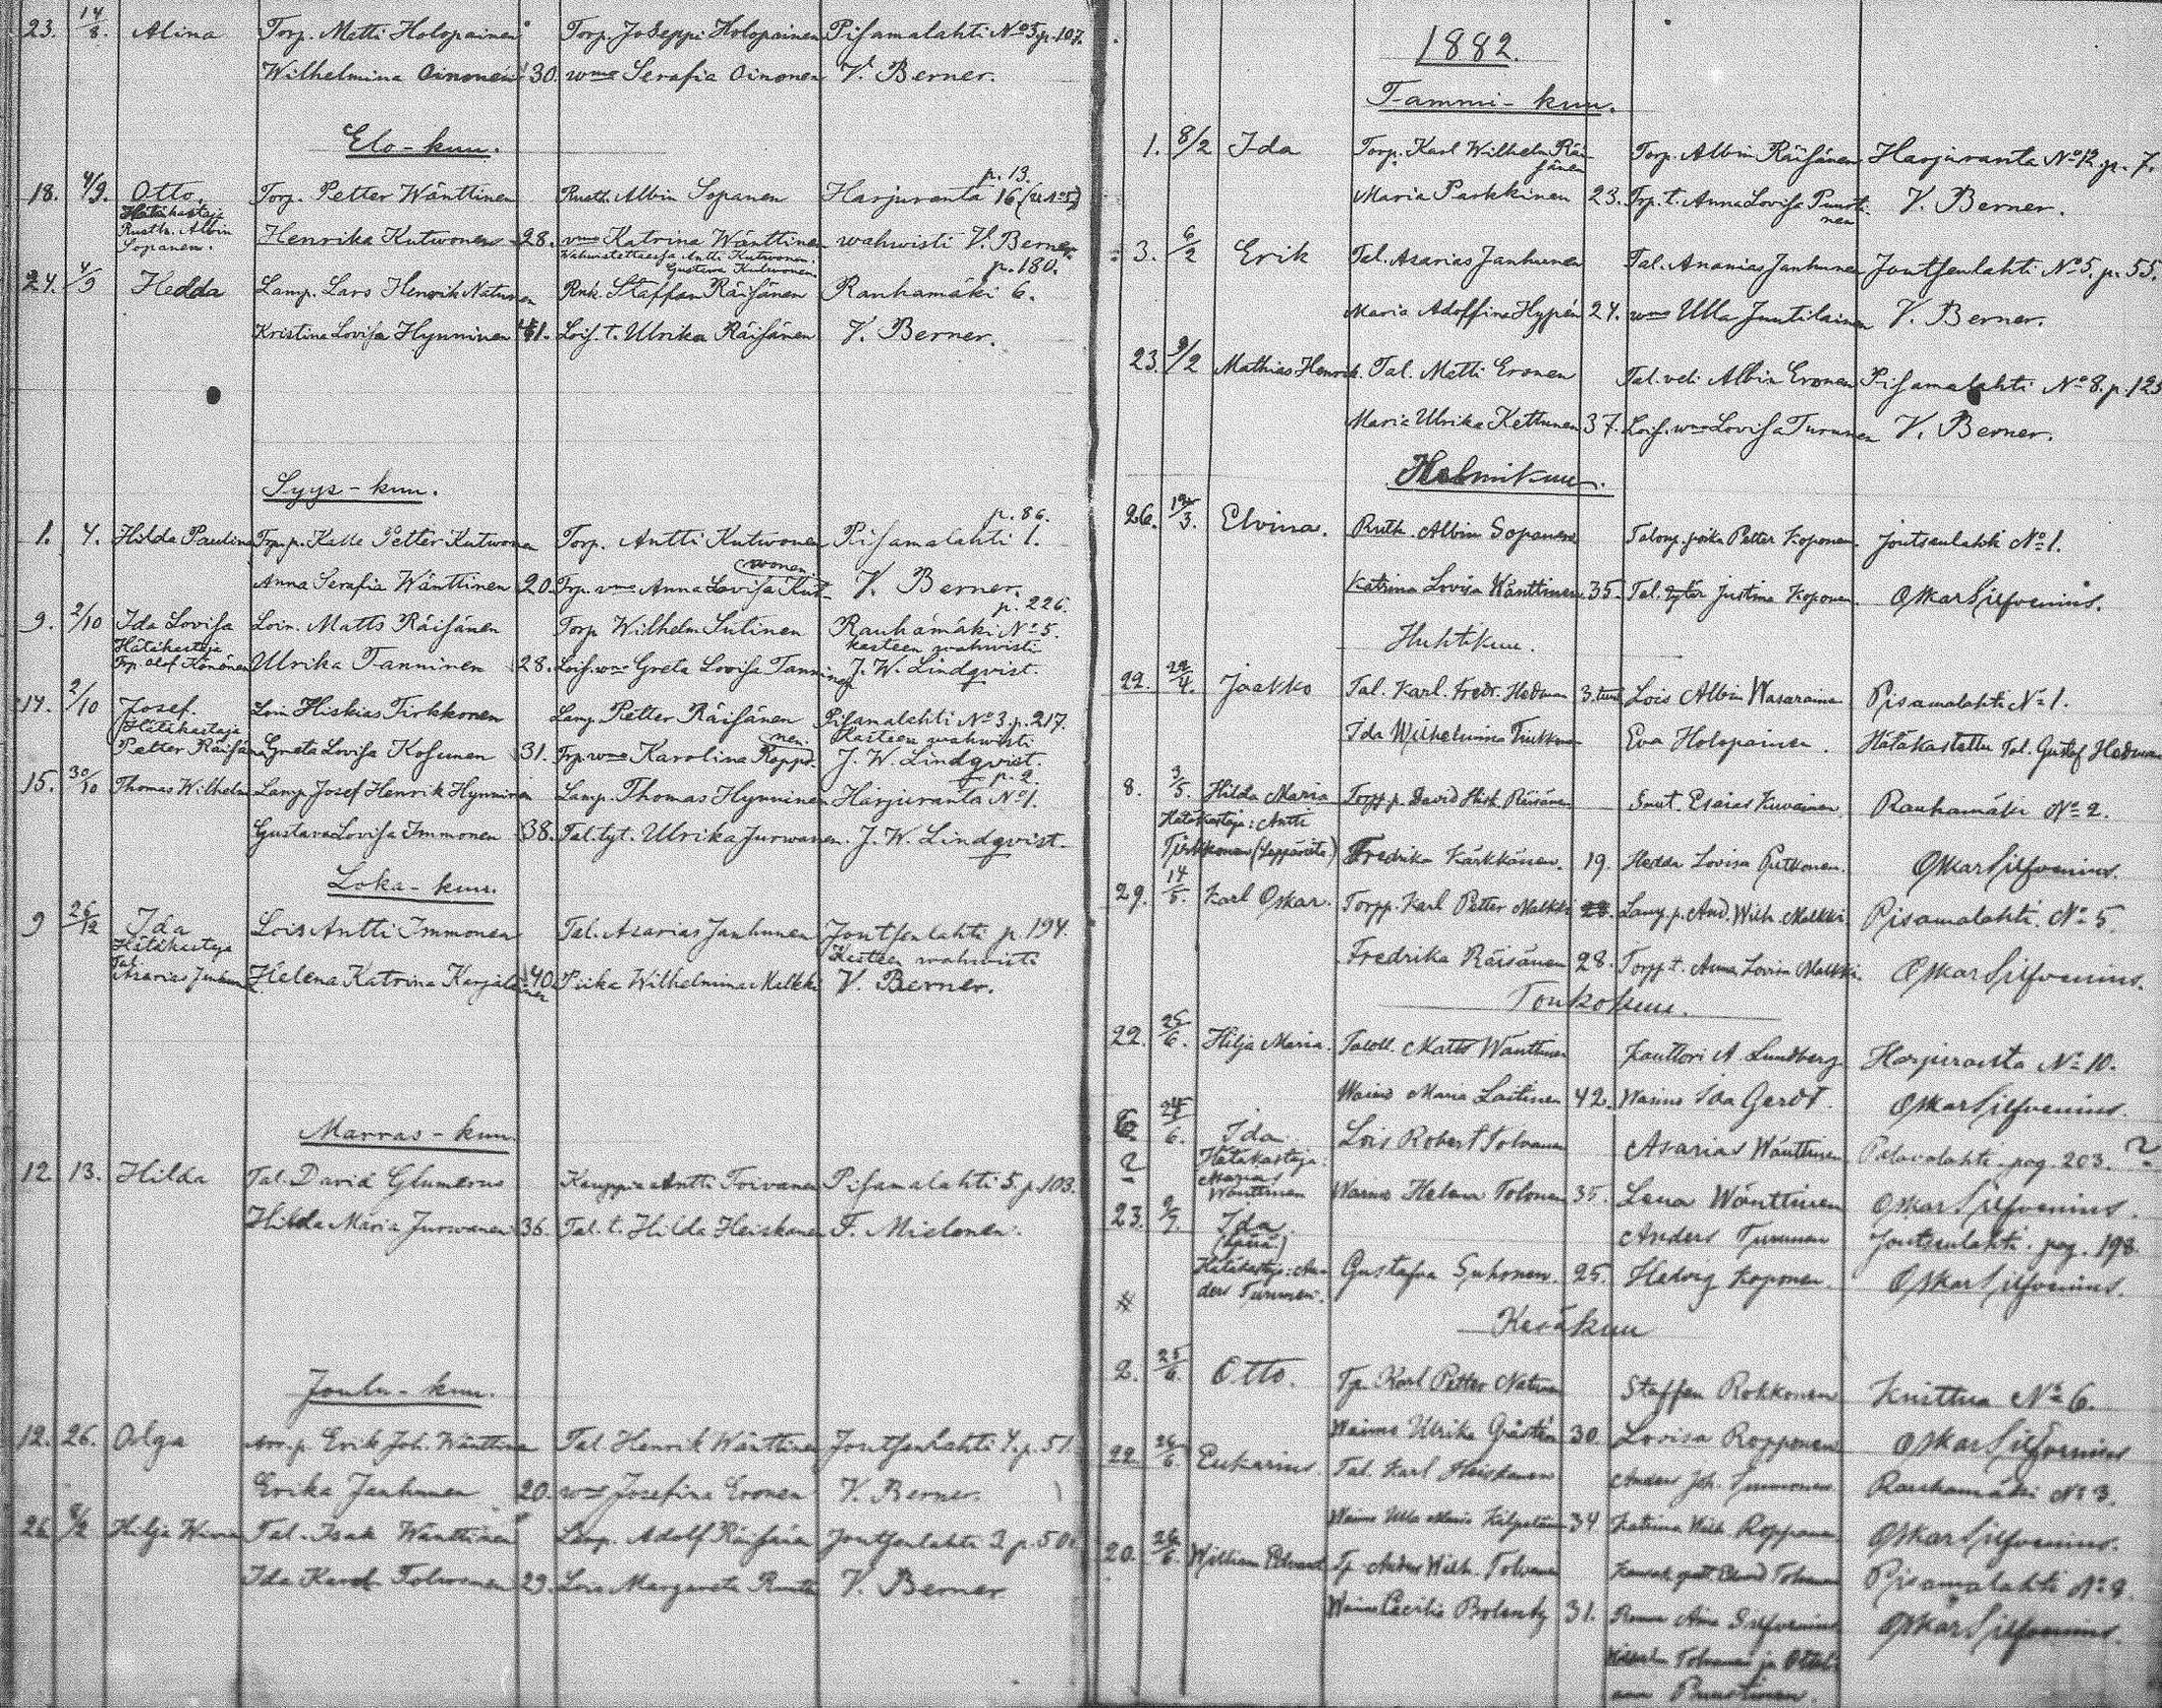 23. 14/8. Alina Torp. Matti Holopainen Torp. Joseppi Holopainen Pisamalahti No 5. p. 107.
Wilhelmina Oinonen 30. wmo Serafia Oinonen V. Berner.
Elo-kuu.
p. 13.
18. 4/9. Otto. Torp. Petter Wänttinen Rusth. Albin Sopanen Harjuranta 16
Hätäkastaja Rusth. Albin Sopanen. Henrika Kutwonen 28. vmo Katrina Wänttinen wahwisti V. Berner.
Wahwistettaessa Antti Kutwonen. Gustava Kutwonen.
p. 180.
24. 4/9 Hedda Lamp. Lars Henrik Natunen Rnk. Staffan Räisänen Rauhamäki 6.
Kristina Lovisa Hynninen 41. Lois. t. Ulrika Räisänen V. Berner.
Syys-kuu.
p. 86.
1. 4. Hilda Paulina Trp. p. Kalle Petter Kutwonen Torp. Antti Kutwonen Pisamalahti 1.
Anna Serafia Wänttinen 20. Trp. vmo Anna Lovisa Kutwonen V. Berner.
p. 226.
9. 2/10 Ida Lovisa Loin. Matts Räisänen Torp Wilhelm Sutinen Rauhamäki No 5.
Hätäkastaja Trp. Olof Könönen Ulrika Tanninen 28. Lois. wmo Greta Lovisa Tanninen kasteen wahwisti J. W. Lindqvist.
14. 2/10 Josef. Loin Hiskias Tirkkonen Lamp. Petter Räisänen Pisamalahti No 3. p. 217.
Hätäkastaja Petter Räisänen Greta Lovisa Kosunen 31. Trp. wmo Karolina Ropponen. Kasteen wahwisti J. W. Lindqvist.
p. 2.
15. 30/10 Thomas Wilhelm Lamp. Josef Henrik Hynninen Lamp. Thomas Hynninen Harjuranta No 1.
Gustava Lovisa Immonen 38. Tal. tyt. Ulrika Jurwanen. J. W. Lindqvist.
Loka-kuu.
9 26/12 Ida Lois Antti Immonen Tal. Asarias Janhunen Joutsenlahti p. 194.
Hätäkastaja Tal. Asarias Janhunen Helena Katrina Karjalainen 40. Piika Wilhelmina Malkki Kasteen wahwisti V. Berner.
Marras-kuu.
12. 13. Hilda Tal. David Glumerus Kauppias Antti Toivanen Pisamalahti 5. p. 103.
Hilda Maria Jurwanen 36. Tal. t. Hilda Heiskanen F. Mielonen.
Joulu-kuu.
12. 26. Olga Erik Joh. Wänttinen Tal. Henrik Wänttinen Joutsenlahti 4. p. 51.
Erika Janhunen 20. wmo Josefina Eronen V. Berner.
26. Hilja Tal. Isak Wänttinen Lamp. Adolf Räisänen Joutsenlahti 3 p. 50.
Ida Tolwonen 29. Lois Margareta V. Berner
1882.
Tammi-kuu.
1. 8/2 Ida Torp. Karl Wilhelm Räisänen Torp. Albin Räisänen Harjuranta No 12. p. 7.
Maria Parkkinen 23. Trp. t. Anna Lovisa Puustinen V. Berner.
3. 6/2 Erik Tal. Asarias Janhunen Tal. Ananias Janhunen Joutsenlahti No 5. p. 55.
Maria Adolfina Hypén 24. wmo Ulla Juutilainen V. Berner.
23. 9/2 Mathias Henrik. Tal. Matti Eronen Tal. veli Albin Eronen Pisamalahti No 8. p. 123
Maria Ulrika Kettunen 37. Lois. wmo Lovisa Turunen V. Berner.
Helmikuu.
26. 19/3. Elvina. Rusth. Albin Sopanen Talonp. poika Petter Koponen. Joutsenlahti No 1.
Katrina Lovisa Wänttinen 35. Tal. tytär Justina Koponen. Oskar Silfvenius.
Huhtikuu.
22. 22/4. Jaakko Tal. Karl Fredr. Hedman Lois Albin Wasarainen Pisamalahti No 1.
Ida Wilhelmina Eva Holopainen. Hätäkastettu Tal. Gustaf Hedman
8. 3/5. Hilda Maria Torpp. p. David Hisk. Räisänen Esaias Kuvainen Rauhamäki No 2.
Hätäkastaja: Antti Tirkkonen (Leppäniitu) Fredrika Kärkkäinen. 19. Hedda Lovisa Putkonen. Oskar Silfvenius.
29. 14/5. Karl Oskar. Torpp. Karl Petter Malkki Lamp. p. And. Wilh. Malkki. Pisamalahti No 5.
Fredrika Räisänen 28. Torpp. t. Anna Lovisa Malkki. Oskar Silfvenius.
Toukokuu.
22. 25/6. Hilja Maria. Matts Wänttinen Kanttori A. Lundberg Harjuranta No 10.
Waimo Maria Laitinen 42. Waimo Ida Gerdt. Oskar Silfvenius.
6 24/6. Ida Lois Robert Tolvanen Asarias Wänttinen pag. 203. ?
? Hätäkastaja: Asarias Wänttinen Waimo Helena Tolonen 35. Lena Wänttinen Oskar Silfvenius.
23. 2/7. Ida (äpärä) Anders Turunen Joutsenlahti. pag. 198.
Hätäkastaja: Anders Turunen. Gustafva Suhonen. 25. Hedvig Koponen. Oskar Silfvenius.
Kesäkuu
2. 25/6. Otto. Tp. Karl Petter Natunen Staffan Rokkonen Knittua No 6.
Waimo Ulrika 30. Lovisa Ropponen Oskar Silfvenius
22. 26/6. Eukarius. Tal. Karl Heiskanen Anders Joh. Rauhamäki No 3.
Waimo Ulla Maria 34 Katrina Wilh. Ropponen Oskar Silfvenius.
20. 26/6. William Edvard Tp. Anders Wilh. Tolvanen Pisamalahti No 8.
Waimo Cecilia 31. Silfvenius Oskar Silfvenius.
Tolvanen ja